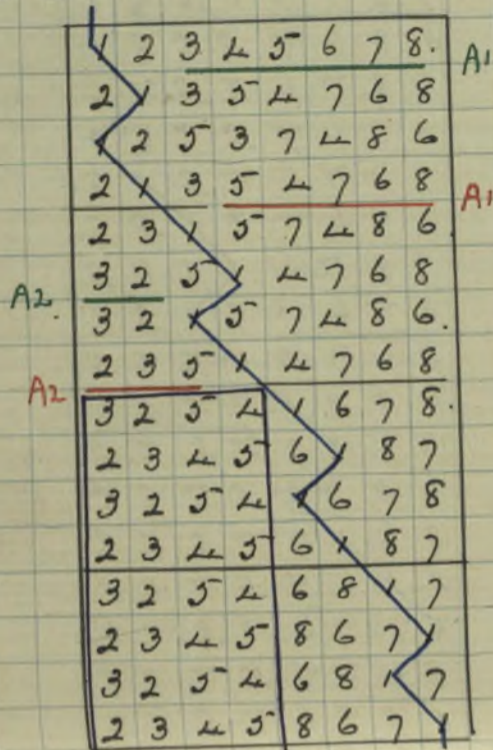 1 2 3 4 5 6 7 8. A1
2 1 3 5 4 7 6 8
1 2 5 3 7 4 8 6
2 1 3 5 4 7 6 8 A1
2 3 1 5 7 4 8 6.
A2. 3 2 5 1 4 7 6 8
3 2 1 5 7 4 8 6.
A2 2 3 5 1 4 7 6 8
3 2 5 4 1 6 7 8.
2 3 4 5 6 1 8 7
3 2 5 4 1 6 7 8
2 3 4 5 6 1 8 7
3 2 5 4 6 8 1 7
2 3 4 5 8 6 7 1
3 2 5 4 6 8 1 7
2 3 4 5 8 6 7 1